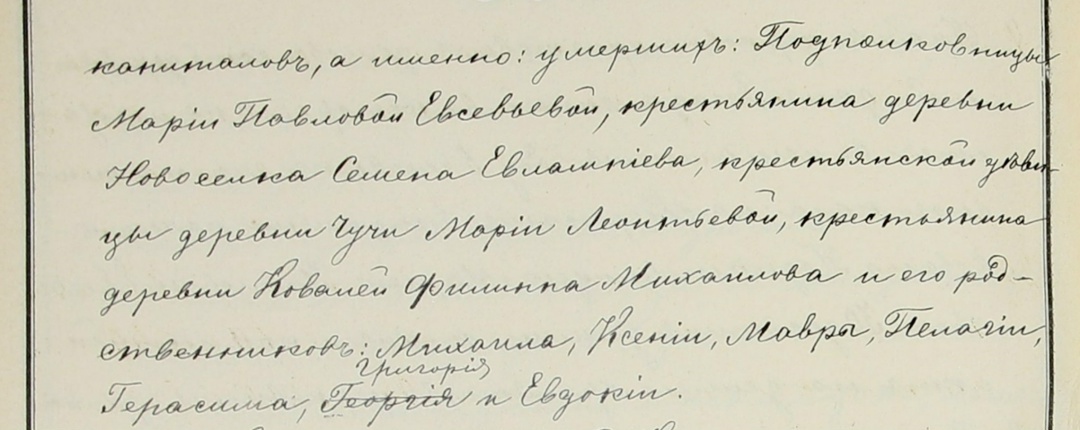 капиталовъ, а именно: умершихъ: Подполковницы
Маріи Павловой Евсевьевой, крестьянина деревни
Новоселка Семена Евлампіева, крестьянской дѣви-
цы деревни Чучи Маріи Леонтьевой, крестьянина
деревни Ковалей Филиппа Михаилова и его род-
ственниковъ: Михаила, Ксеніи, Мавры, Пелагіи,
Григорія
Герасима, Георгія и Евдокіи.